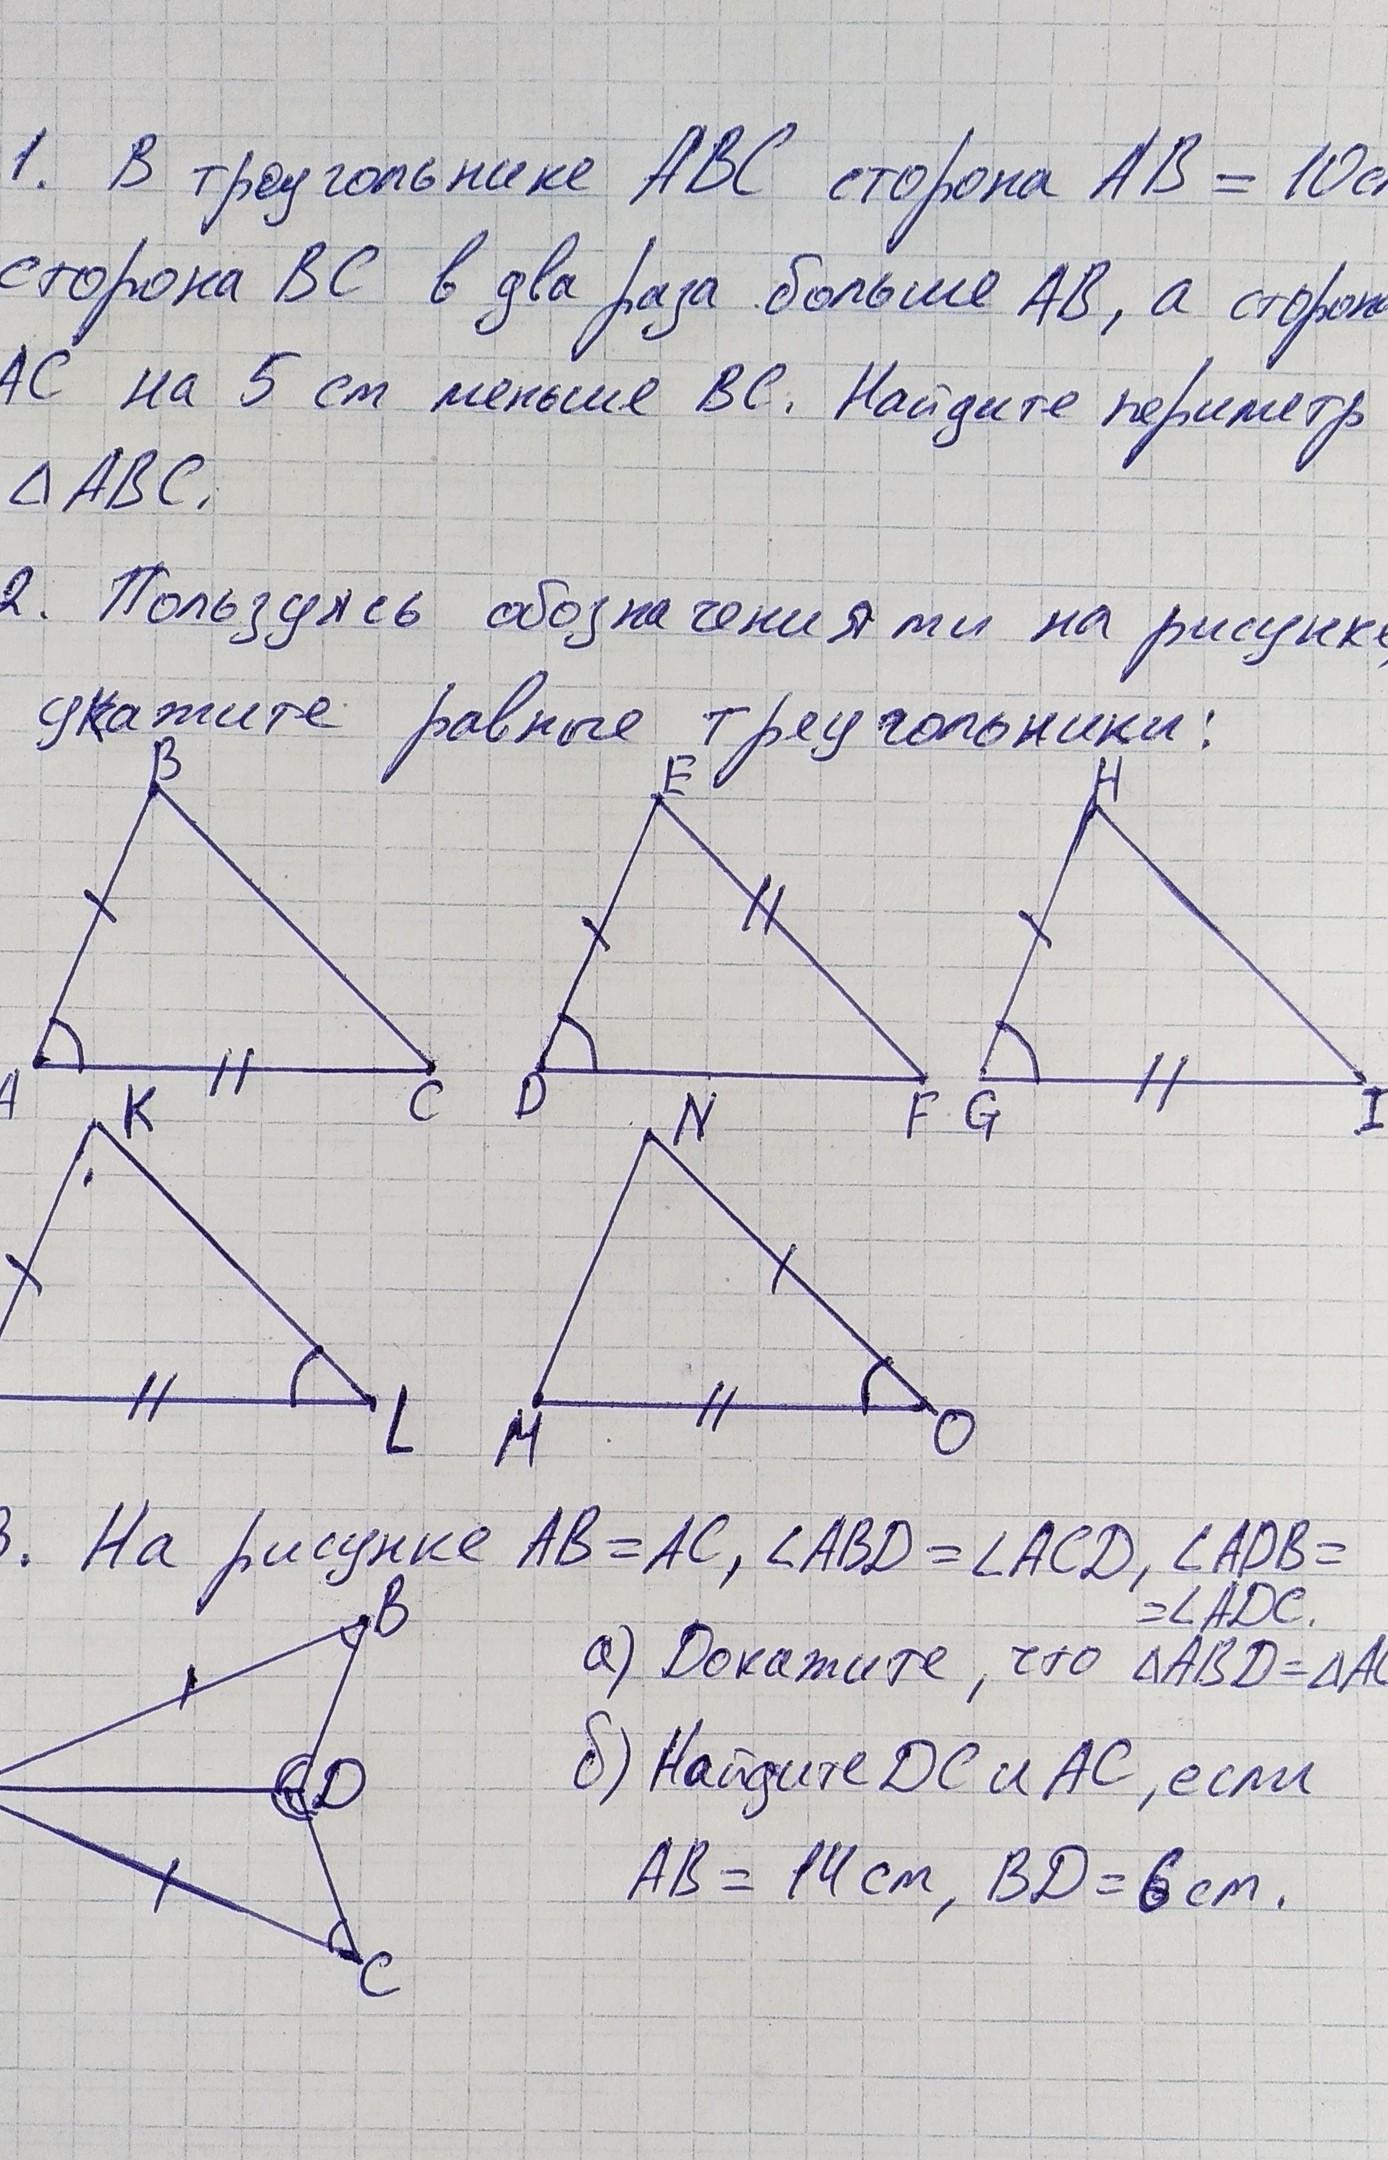 1. В треугольнике ABC сторона AB = 10с
сторона BC в два раза больше AB, а сторон
AC на 5 см меньше BC. Найдите периметр
△ABC.
2. Пользуясь обозначениями на рисунке,
укажите равные треугольники:
B E H
A C D F G I
K N
L M O
3. На рисунке AB=AC, ∠ABD=∠ACD, ∠ADB=
=∠ADC.
B
а) Докажите, что △ABD=△AC
D
б) Найдите DC и AC, если
AB = 14 см, BD=6 см.
C